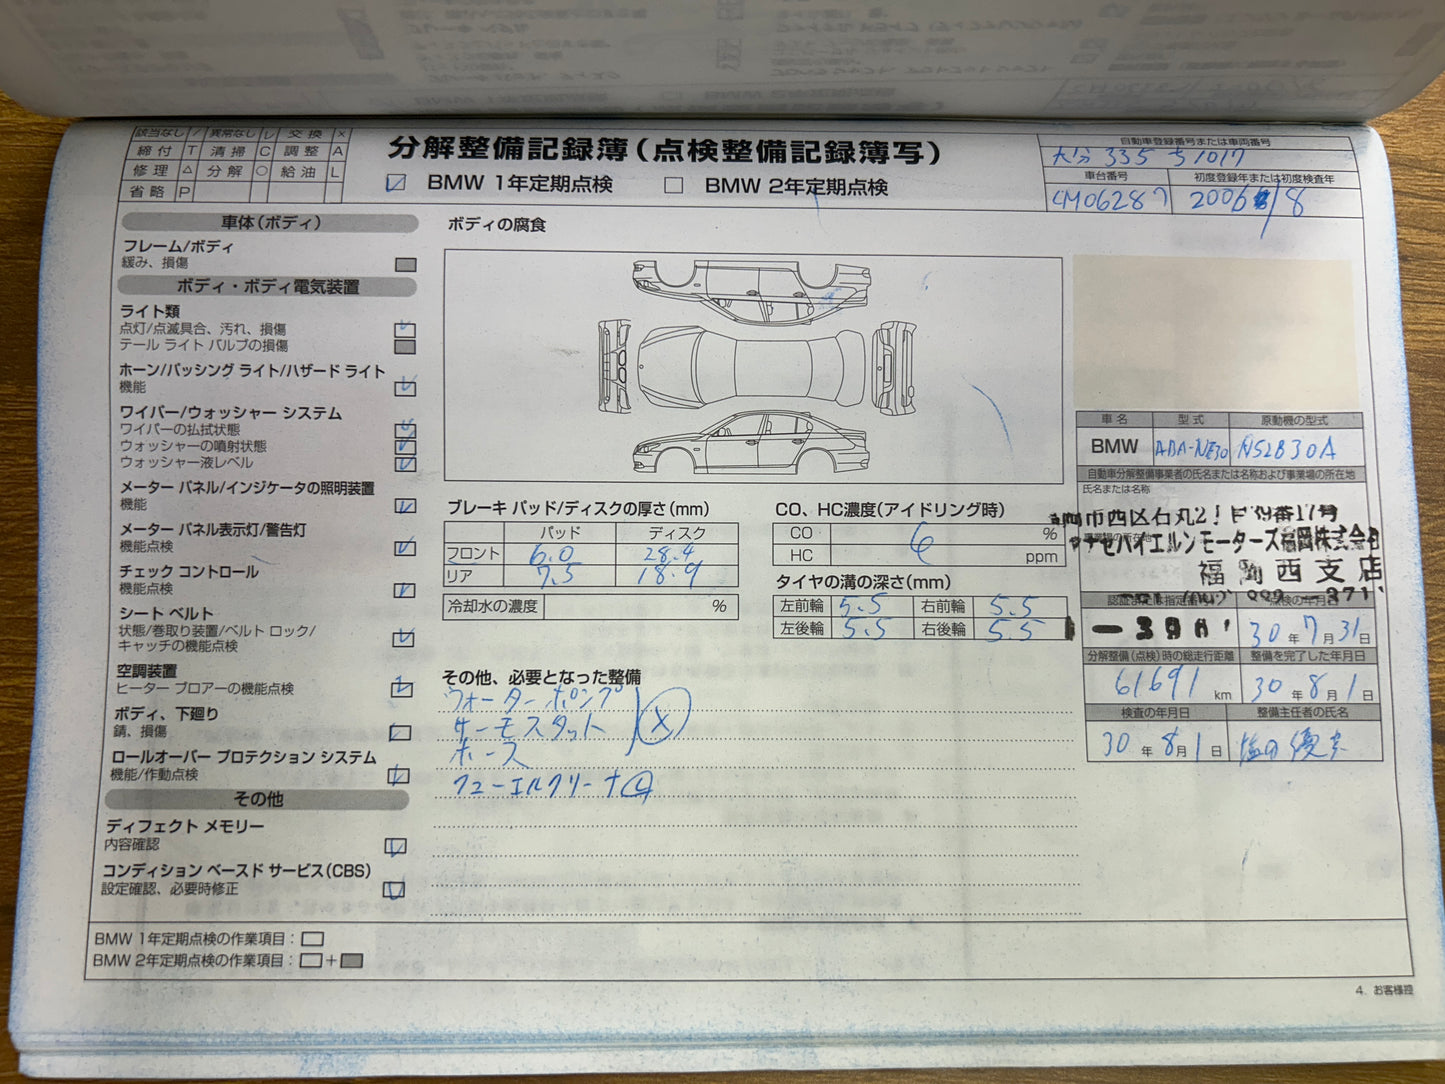 該当なし / 異常なし レ 交換 ×
締付 T 清掃 C 調整 A
修理 △ 分解 ○ 給油 L
省略 P
分解整備記録簿(点検整備記録簿写)
BMW 1年定期点検 BMW 2年定期点検
自動車登録番号または車両番号
大分 335 ち1017
車台番号 初度登録年または初度検査年
CM06287 2006 / 8
車体(ボディ)
フレーム/ボディ
緩み、損傷
ボディ・ボディ電気装置
ライト類
点灯/点滅具合、汚れ、損傷
テール ライト バルブの損傷
ホーン/パッシング ライト/ハザード ライト
機能
ワイパー/ウォッシャー システム
ワイパーの払拭状態
ウォッシャーの噴射状態
ウォッシャー液レベル
メーター パネル/インジケータの照明装置
機能
メーター パネル表示灯/警告灯
機能点検
チェック コントロール
機能点検
シート ベルト
状態/巻取り装置/ベルト ロック/
キャッチの機能点検
空調装置
ヒーター ブロアーの機能点検
ボディ、下廻り
錆、損傷
ロールオーバー プロテクション システム
機能/作動点検
その他
ディフェクト メモリー
内容確認
コンディション ベースド サービス(CBS)
設定確認、必要時修正
ボディの腐食
ブレーキ パッド/ディスクの厚さ(mm)
パッド ディスク
フロント 6.0 28.4
リア 7.5 18.9
冷却水の濃度 %
CO、HC濃度(アイドリング時)
CO %
6
HC ppm
タイヤの溝の深さ(mm)
左前輪 5.5 右前輪 5.5
左後輪 5.5 右後輪 5.5
その他、必要となった整備
ウォーターポンプ
サーモスタット ×
ホース
フューエルクリーナ L
車名 型式 原動機の型式
BMW ABA-NE30 N52B30A
自動車分解整備事業者の氏名または名称および事業場の所在地
氏名または名称
市西区石丸2丁目39番17号
バイエルンモータース福岡株式会社
福岡西支店
点検の年月日
30年7月31日
分解整備(点検)時の総走行距離 整備を完了した年月日
61691 km 30年8月1日
検査の年月日 整備主任者の氏名
30年8月1日
BMW 1年定期点検の作業項目:
BMW 2年定期点検の作業項目: +
4. お客様控